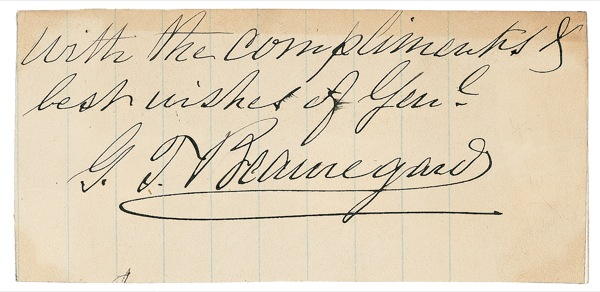 with the compliments &
best wishes of Genl.
G. T. Beauregard